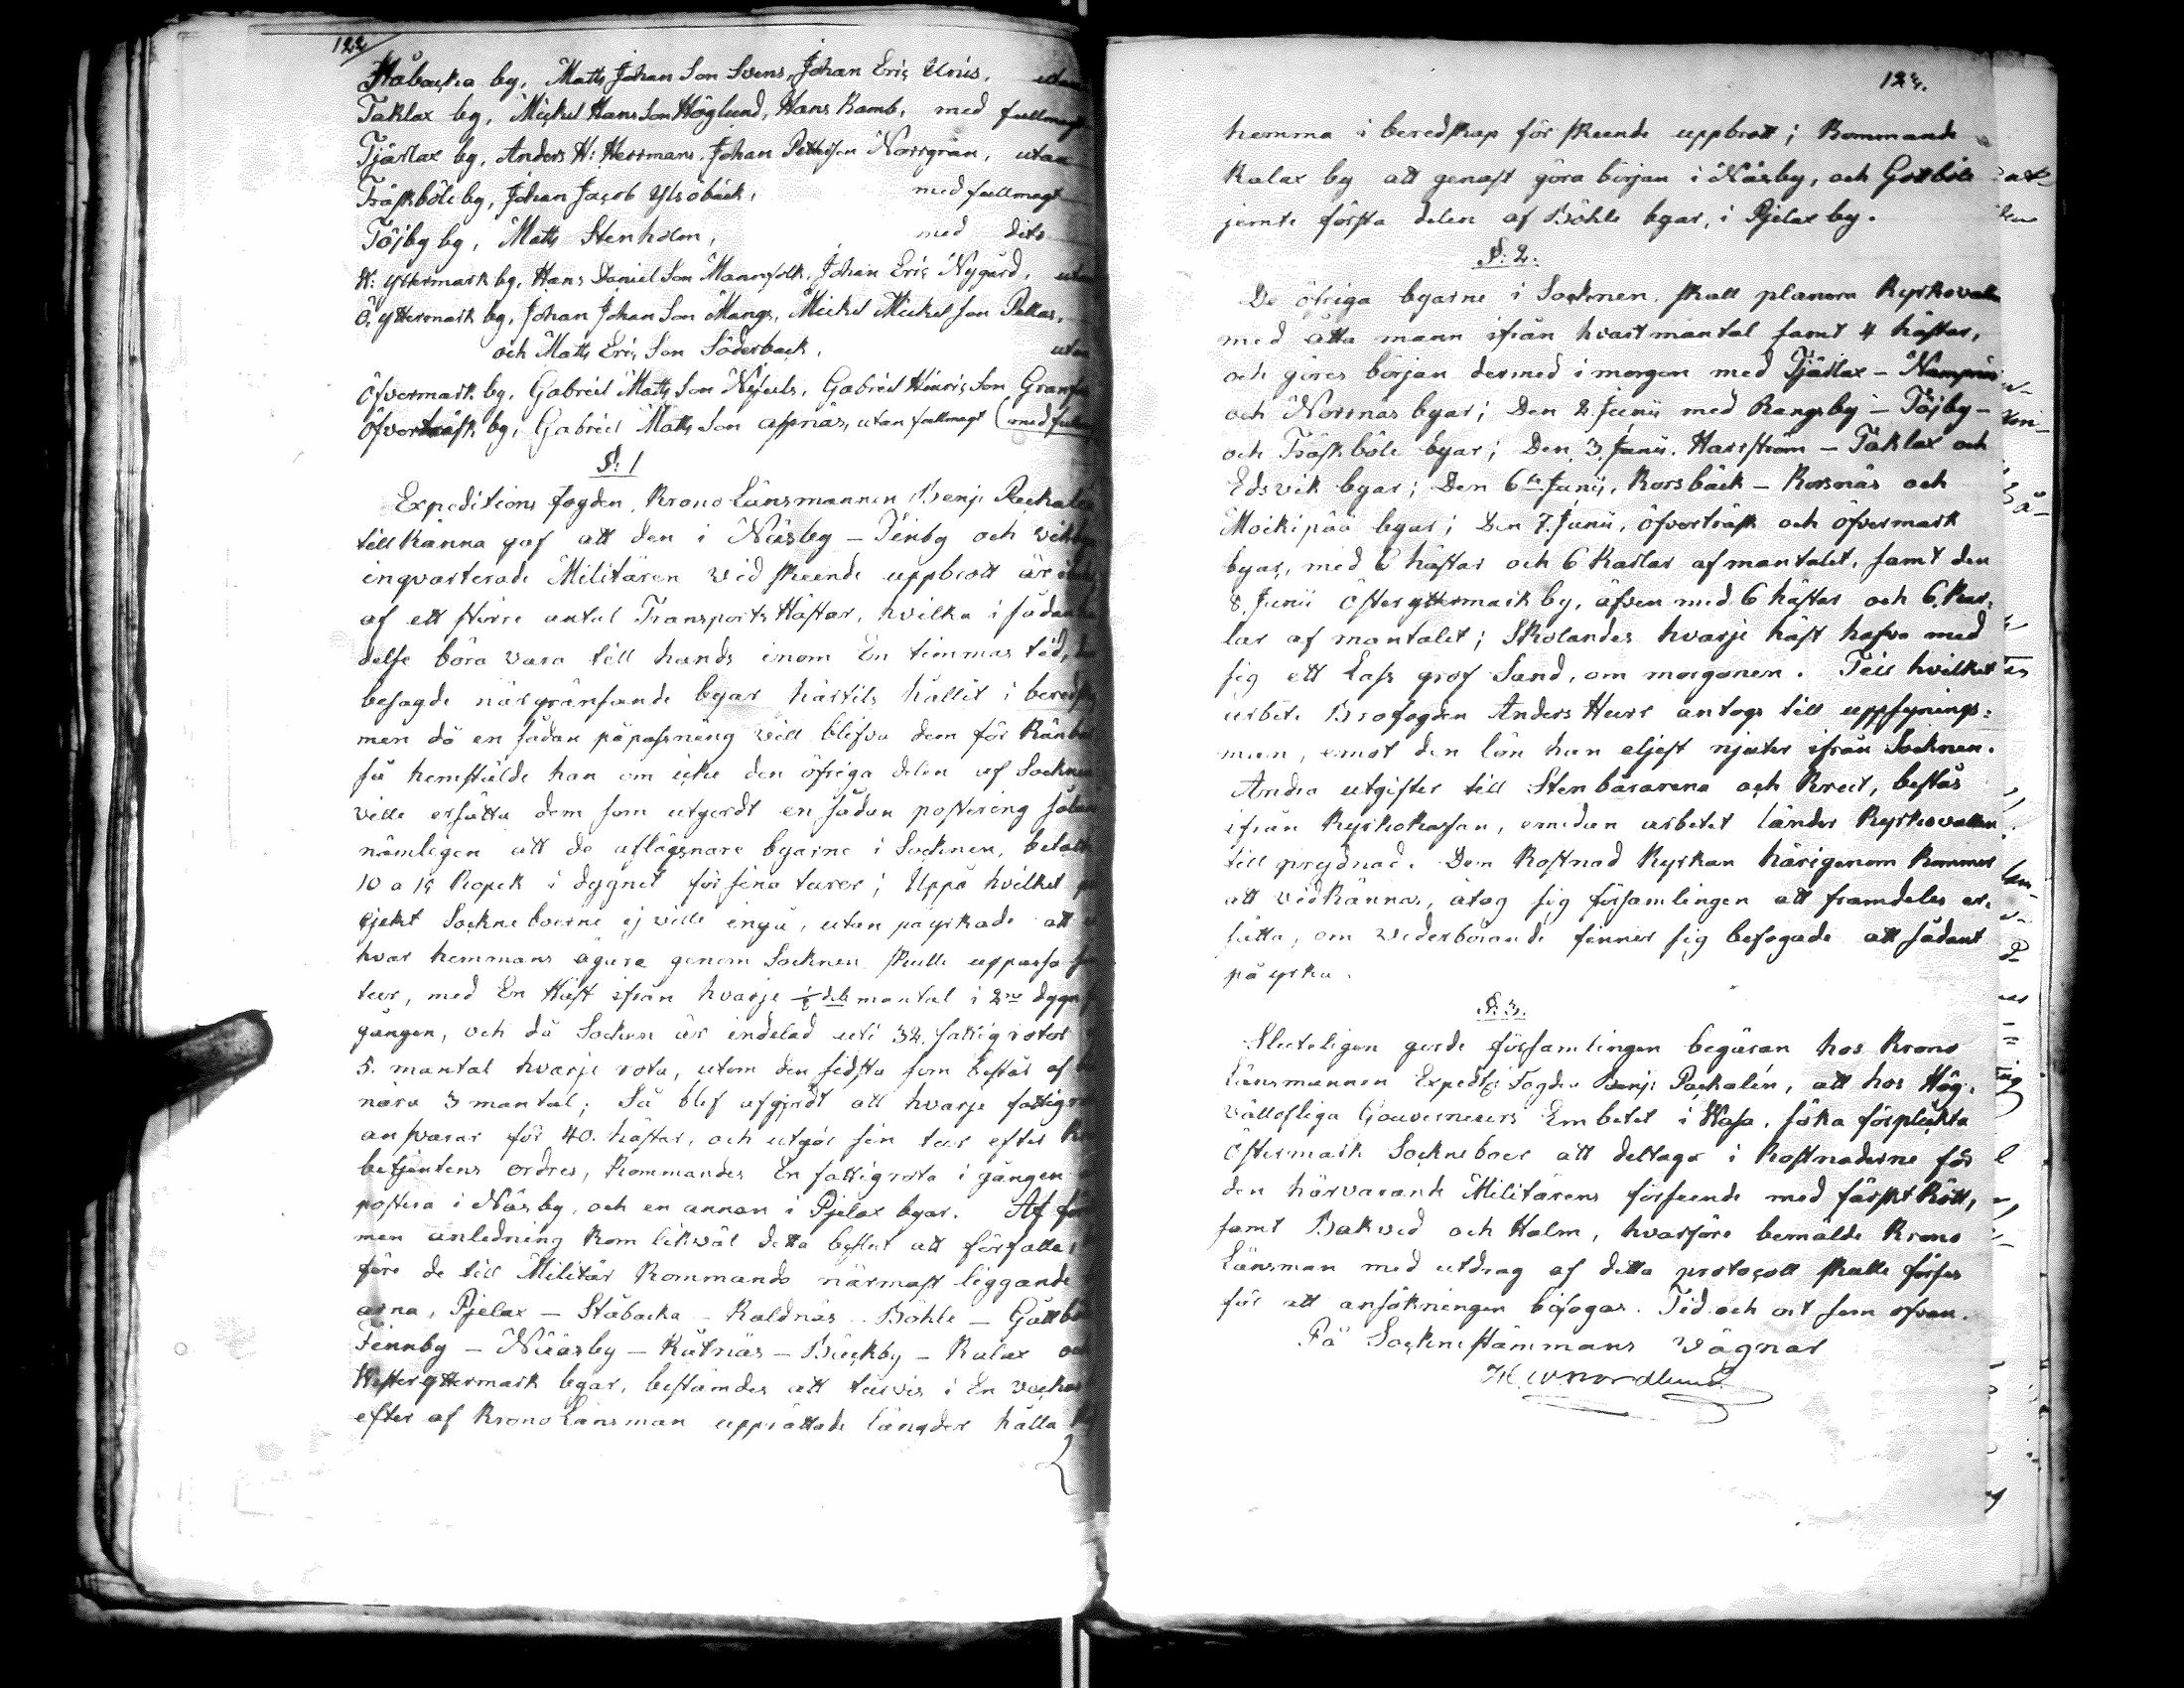 122
Ståbacka by, Matts Johan Son Svens, Johan Eric Unis, utan
Taklax by, Mickel Hans Son Höglund, Hans Ramb, med fullmagt
Tjärlax by, Anders H: Herrmans, Johan Petterson Norrgrän, utan
Träskböle by, Johan Jacob Ytsöbäck, med fullmagt
Töjby by, Matts Stenholm, med dito
W: yttermark by, Hans Daniel Son Mannfolk, Johan Eric Nygård, utan
Ö. yttermark by, Johan Johan Son Mangs, Mickel Mickel son Pellas,
och Matts Eric Son Söderback, utan
Öfvermark by, Gabriel Matts Son Nifuls, Gabriel Hinric Son Granfors
Öfverträsk by, Gabriel Matts Son Aspnäs, utan fullmagt (med fullm
§: 1
Expeditions fogden, Krono Länsmannen Benj: Packalén
till känna gaf att den i Näsby - Finby och
inqvarterade Militären vid skeende uppbrott är i
af ett större antal Transports Hästar, hvilka i sådan
delse böra vara till hands inom En timmas tid,
besagde närgränsande byar härtils hållit i beredsk
men då en sådan påpassning vill blifva dem för känb
så hemstälde han om icke den öfriga delen af Socknen
ville ersätta dem som utgordt en sådan postering sålun
nämligen att de aflägsnare byarne i Socknen, betalte
10 a 15 Kopek i dygnet för sina turer; Uppå hvilket
Sockneboerne ej ville ingå, utan påyrkade att
hvar hemmans ägare genom Socknen skulle uppassa
tur, med En Häst ifrån hvarje 1/8 dels mantal i 2ne dygn
gången, och då Socknen är indelad uti 32 fattig rotor
5. mantal hvarje rota, utom den sidsta som består af
nära 3 mantal; Så blef afgjordt att hvarje fattigro
ansvarar för 40. hästar, och utgör sin tur efter Kro
betjentens ordres, kommandes En fattigrota i gången
postera i Näs by, och en annan i Pjelax byar. Af
men anledning kom likväl detta beslut att förfalla
före de till Militär Kommando närmast liggande
arna, Pjelax - Ståbacka - Kaldnäs - Böhle - Gottbö
Finnby - Näsby - Råtnäs - Bäckby - Kalax och
Wester yttermark byar, bestämdes att turvis i En veckas
efter af Krono Länsman upprättade längder hålla
123.
hemma i beredskap för skeende uppbrott; Kommande
Kalax by att genast göra början i Näsby, och Gottböle
jemte första delen af Böhle byar, i Pjelax by.
§: 2.
De öfriga byarne i Socknen, skall planera Kyrkovallen
med åtta mann ifrån hvart mantal samt 4 hästar,
och göres början dermed i morgon med Tjärlax - Nämpnäs
och Norrnäs byar; Den 2. Junii med Rangsby - Töjby -
och Träskböle byar; Den 3. Junii. Harrström - Taklax och
Edsvik byar; Den 6te Junii, Korsbäck - Korsnäs och
Moikipää byar; Den 7. Junii, Öfverträsk och Öfvermark
byar, med 6 hästar och 6 Karlar af mantalet, samt den
8. Junii Öster yttermark by, äfven med 6 hästar och 6. Kar=
lar af mantalet; Skolandes hvarje häst hafva med
sig ett Lass grof Sand, om morgonen. Till hvilket
arbete Brofogden Anders Hurr antogs till uppsynings=
man, emot den lön han eljest njuter ifrån Socknen.
Andra utgifter till Stenbärarena och Krut, bestås
ifrån Kyrkokassan, emedan arbetet länder Kyrkovallen
till prydnad. Den Kostnad Kyrkan härigenom kommer
att vidkännas, åtog sig församlingen att framdeles er=
sätta, om vederbörande finner sig befogade att sådant
påyrka.
§: 3.
Sluteligen gorde församlingen begäran hos Krono
Länsmannen Expedts: Fogden Benj: Packalén, att hos Hög=
vällofliga Gouverneurs Embetet i Wasa, söka förplickta
Östermark Socknebor att deltaga i Kostnaderne för
den härvarande Militärens förseende med färskt Kött,
samt Bakved och Halm, hvarföre bemälde Krono
Länsman med utdrag af detta protocoll skulle förses
för att ansökningen bifogas. Tid och ort som ofvan.
På Sockne Stämmans Vägnar